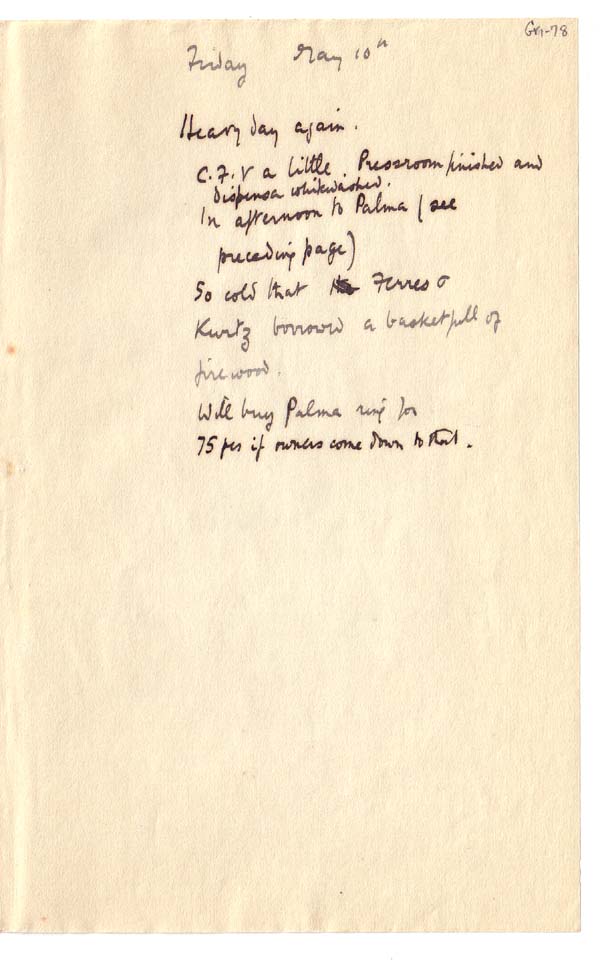 GR1-78
Friday May 10th
Heavy day again.
C.F.V a little. Pressroom finished and
dispensa whitewashed.
In afternoon to Palma (see
preceding page)
So cold that Ferres &
Kurtz borrowed a basketfull of
firewood.
Will buy Palma ring for
75 pes if owners come down to that.